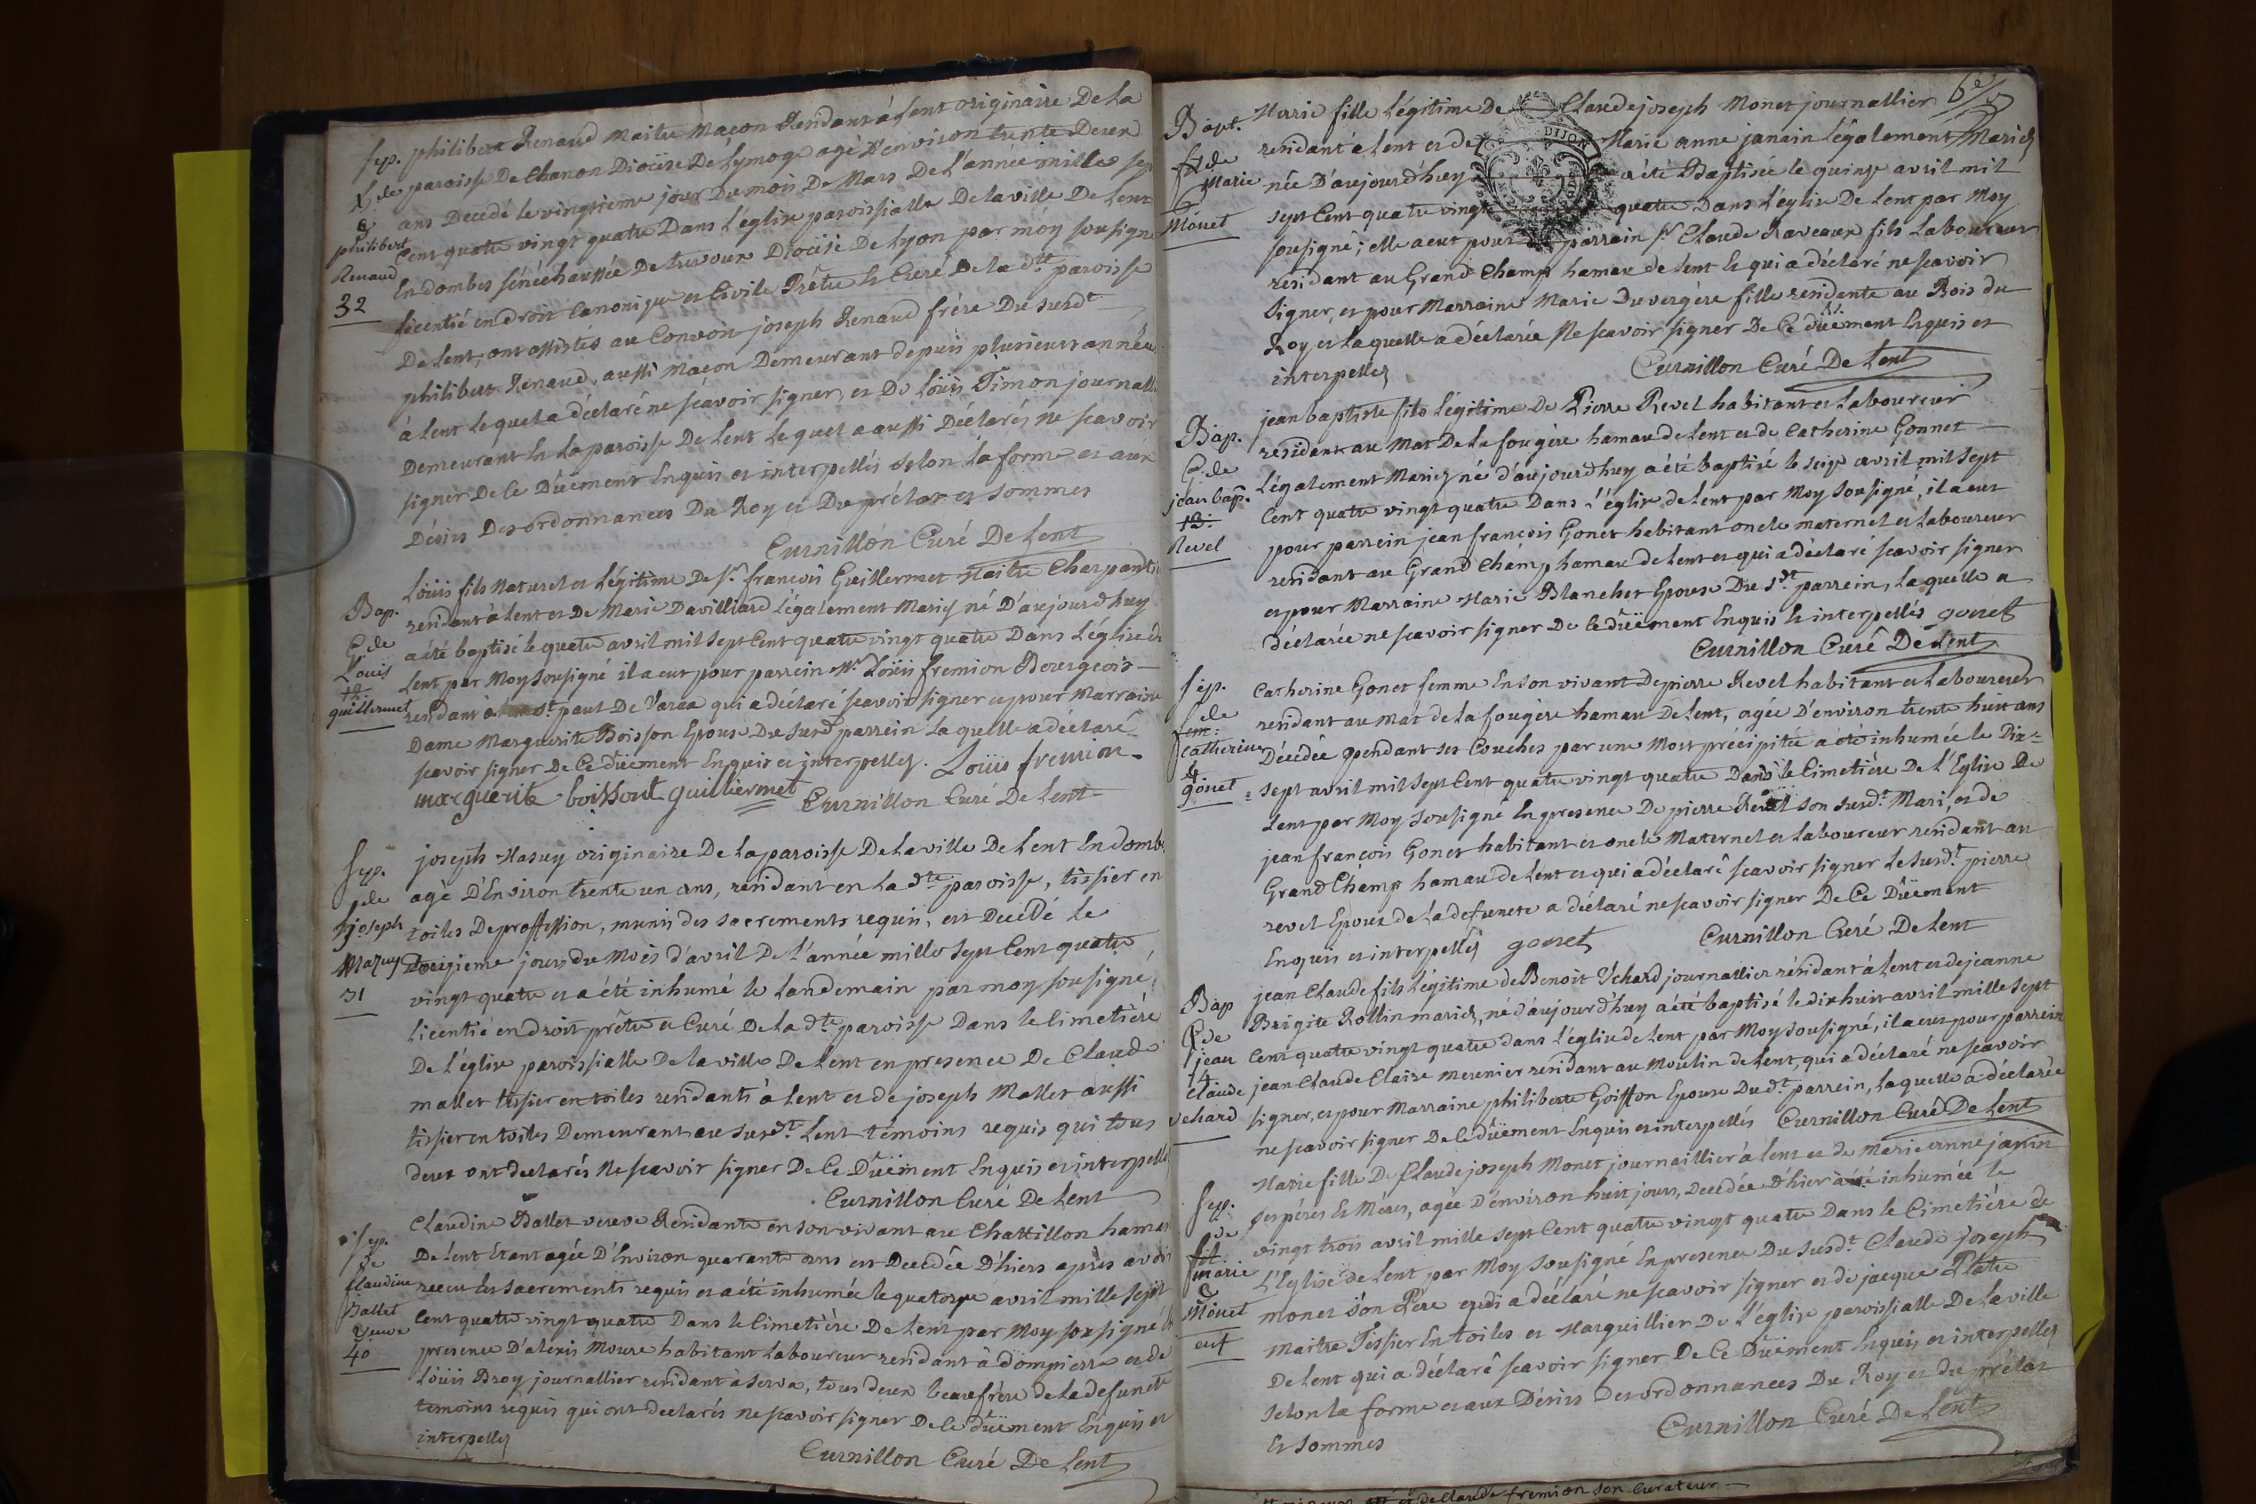 Sep.
de
philibert
Renaud
32
philibert Renaud Maitre Maçon Residant à Lent originaire De La
paroisse De Chanon Diocise De Lymoge agé D'environ trente Deux
ans Decedé le vingtieme jour Du mois De Mars De L'année mille sep
Cent quatre vingt quatre Dans L'église paroissialle De la ville De Lent
En dombes sénéchaussée De trevoux Diocise De Lyon par moy sousigné
licentié en droit Canonique et Civile Prêtre Et Curé De la dte paroisse
De Lent, ont assistés au Convoy joseph Renaud frére Du susdt
philibert Renaud, aussi Maçon Demeurant depuis plusieurs années
à Lent lequel a déclaré ne sçavoir signer, et De Loüis Timon journall
Demeurant En La paroisse De Lent lequel a aussi Déclarés ne sçavoir
signer De Ce Dûement Enquis et interpellés selon la forme et aux
Désirs Des ordonnances Du Roy et Du prélat et sommes
Curnillon Curé De Lent
Bap.
de
Louis
guillermet
Loüis fils Naturel et Légitime De Sr. francois Guillermet Maitre Charpanti
residant à Lent et De Marie Davilliard Légalement Mariés né D'aujourdhuy
a été baptisé le quatre avril mil sept Cent quatre vingt quatre Dans L'église de
Lent par Moy sousigné il a eut pour parrein Mr. Loüis fremion Bourgeois
residant à St. paul De Varax qui a déclaré sçavoir signer et pour Marraine
Dame Marguerite Boisson Epouse Du susd parrein La quelle a déclaré
sçavoir signer De Ce dûement Enquis et interpellés. Loüis fremion
marguerite boissont guillermet Curnillon Curé De Lent
Sep.
de
joseph
Mazuy
31
joseph Masuy originaire De la paroisse De la ville De Lent En domb
agé D'Environ trente un ans, residant en La dte paroisse, tissier en
toiles De proffession, munis des sacrements requis, est Decédé le
Treizieme jours du Mois d'avril De L'année mille sept Cent quatre
vingt quatre et a été inhumé le Landemain par moy sousigné
licentié en droit prêtre et Curé De La dte paroisse Dans le Cimetiére
De L'églize paroissialle De la ville De Lent en presence De Claude
mallet tissier en toiles residants à Lent et de joseph Mallet aussi
tissier en toiles Demeurant au susdt. Lent témoins requis qui tous
deux ont declarés Ne sçavoir signer De Ce Dûëment Enquis et interpellé
Curnillon Curé De Lent
Sep.
de
Claudine
Ballet
Veuve
40
Claudine Ballet veuve Residante en son vivant au Chattillon hamau
De Lent Etant agée D'Environ quarante ans est Decedée D'hiers après avoir
receu les sacrements requis et a été inhumée le quatorze avril mille sept
Cent quatre vingt quatre Dans le Cimetière De Lent par Moy sousigné En
presence D'alexis Moure habitant Laboureur residant à dompierre et de
Loüis Broy journallier residant à Servas, tous deux beaufrére de La defuncte
temoins requis qui ont declarés ne sçavoir signer De Ce dûement Enquis et
interpellés
Curnillon Curé De Lent
6e
Bapt.
de
Marie
Monet
Marie fille Légitime De Claude joseph Monet journallier
residant à Lent et de Marie anne janain Légalement Mariés
née D'aujourdhuy a été Baptisée le quinze avril mil
sept Cent quatre vingt quatre Dans L'église De Lent par Moy
sousigné; elle a eut pour parrain Sr. Claude Raveaux fils Laboureur
residant au Grand Champ hamau de Lent Et qui a déclaré ne sçavoir
signer, et pour Marraine Marie Duvergére fille residente au Bois du
Roy et La quelle a déclarée Ne sçavoir signer De Ce dûëment Enquis et
interpellés
Curnillon Curé De Lent
DIJON
Bap.
de
jean bap.
13
Revel
jean baptiste fils Légitime De Pierre Revel habitant et Laboureur
residant au Mat De La fougère hamau de Lent et de Catherine Gonnet
Légalement Mariés né d'aujourdhuy a été baptisé le seize avril mil sept
Cent quatre vingt quatre Dans L'églize de Lent par Moy sousigné, il a eut
pour parrein jean françois Gonet habitant oncle maternel et Laboureur
residant au Grand Champ hamau de Lent et qui a déclaré sçavoir signer
et pour Marraine Marie Blanchet Epouse Du sdt parrein, La quelle a
déclarée ne sçavoir signer De Ce dûëment Enquis Et interpellés gonet
Curnillon Curé De Lent
Sép.
de
Catherine
gonet
Catherine Gonet femme En son vivant De pierre Revel habitant et Laboureur
residant au mat de la fougère hamau De Lent, agée D'environ trente huit ans
Décédée pendant ses Couches par une Mort précipitée a été inhumée le Dix=
sept avril mil sept Cent quatre vingt quatre Dans le Cimetière De L'Eglise De
Lent par Moy sousigné En presence De pierre Revel son susdt. Mari, et de
jean françois Gonet habitant et oncle Maternel et Laboureur residant au
Grand Champ hamau de Lent et qui a déclaré sçavoir signer Le susdt. pierre
revel Epoux de La defuncte a déclaré ne sçavoir signer De Ce Dûëment
Enquis et interpellés gonet Curnillon Curé De Lent
Bap
de
jean
14
Claude
Vehard
jean Claude fils Légitime de Benoit Véhard journallier résidant à Lent et de jeanne
Brigite Rollin mariés, né d'aujourdhuy a été baptisé le dix huit avril mille sept
Cent quatre vingt quatre dans L'églize de Lent par Moy sousigné, il a eut pour parrein
jean Claude Claire meunier residant au Moulin de Lent, qui a déclaré ne sçavoir
signer, et pour Marraine philiberte Goiffon Epouse Du dt. parrein, La quelle a déclarée
ne sçavoir signer De Ce dûëment Enquis et interpellés Curnillon Curé De Lent
Sep.
de
marie
Monet
Marie fille De Claude joseph Monet journaillier à Lent et de Marie anne janin
ses péres Et Méres, agée D'environ huit jours, Decedée D'hier a été inhumée le
vingt trois avril mille sept Cent quatre vingt quatre Dans le Cimetiére de
L'Eglise de Lent par Moy sousigné En presence Du susdt. Claude joseph
monet son Pere qui a déclaré ne sçavoir signer et de jacque Platre
maitre Tissier En toiles et Marguillier De L'église paroissialle De la ville
De Lent qui a déclaré sçavoir signer De Ce Dûëment Enquis et interpellés
selon la forme et aux Désirs Des ordonnances Du Roy et du prélat
Et sommes
Curnillon Curé De Lent
de Claude fremion son Curateur